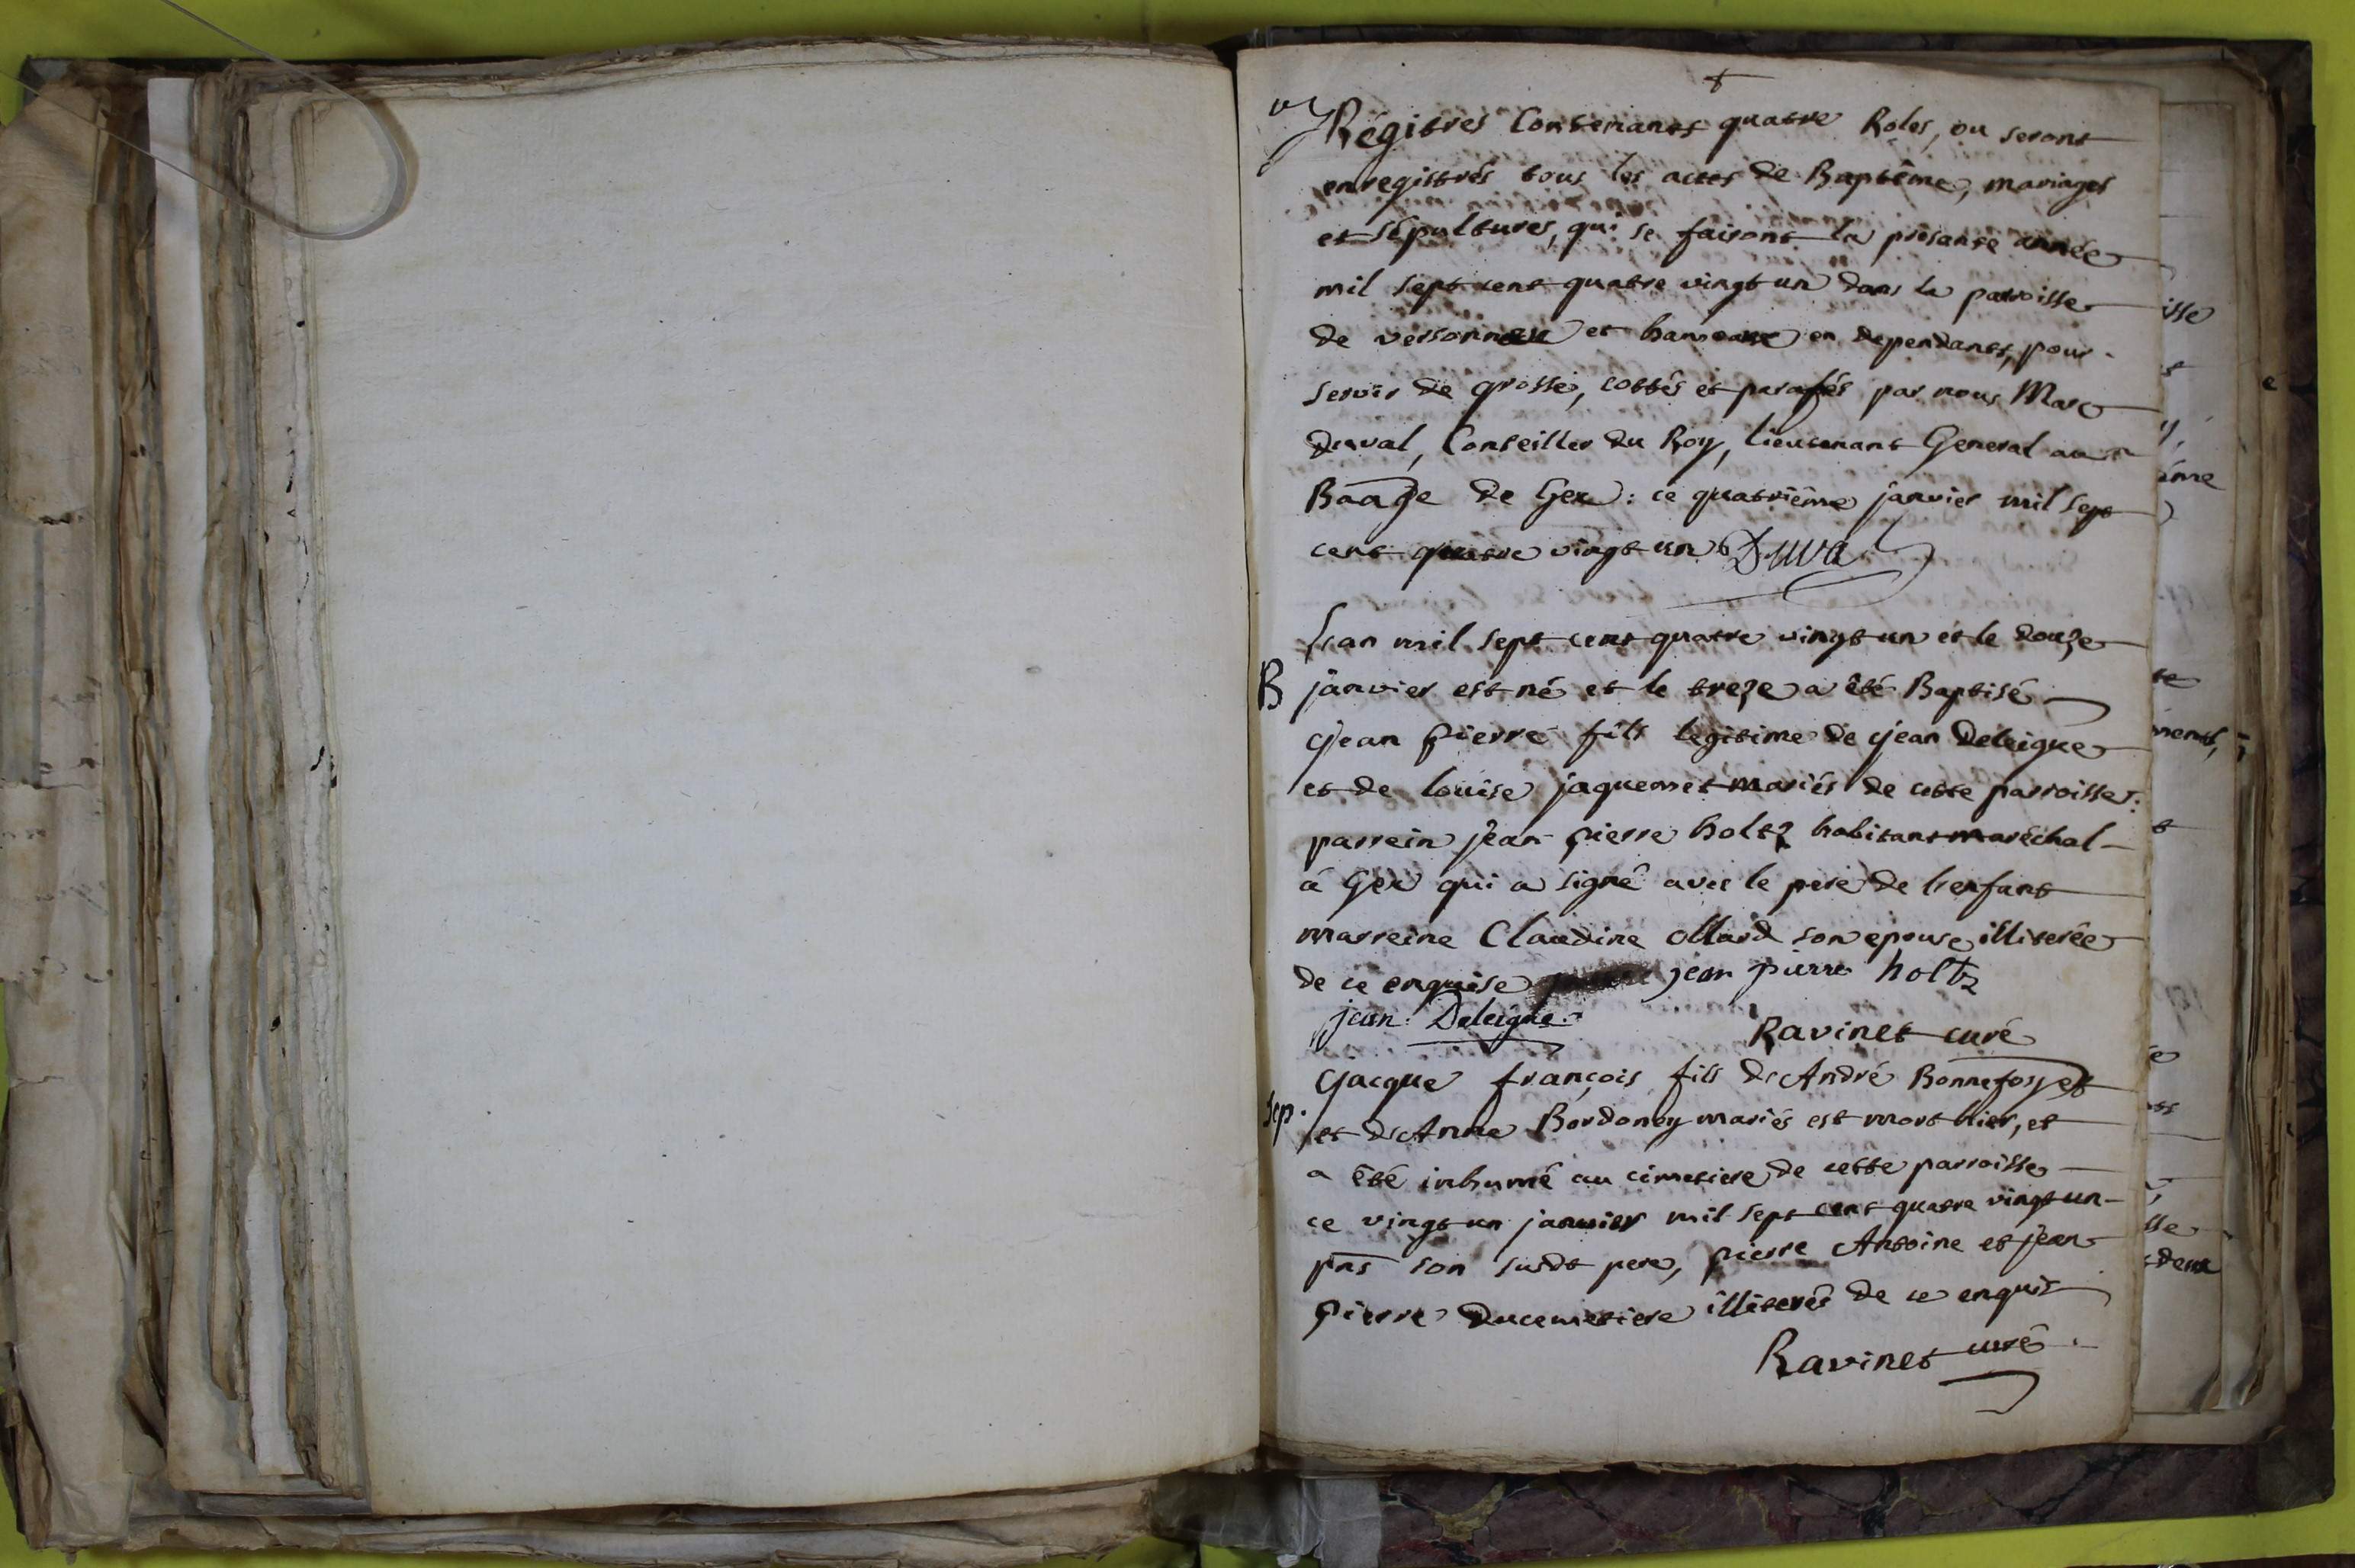 Régitres Contenants quatre Roles, ou seront
enregistrés tous les actes de Baptême, mariages
et sépultures, qui se fairont la présante année
mil sept cent quatre vingt un dans la parroisse
de versonnex et hameaux en dependants, pour
servir de grosse, cottés et parafés par nous Marc
duval, Conseiller du Roy, lieutenant General au
Baage de Gex : ce quatriême janvier mil sept
cent quatre vingt un Duval
L'an mil sept cent quatre vingt un et le douze
B janvier est né et le treze a êté Baptisé
Jean pierre fils legitime de jean Deleigue
et de louise jaquemet mariés de cette parroisse :
parrein jean pierre holtz habitant maréchal
à Gex qui a signé avec le pere de l'enfant
marreine Claudine ollard son epouse illiterée
de ce enquise jean pierre holtz
jean Deleigue
Ravinet curé
Jacque françois fils d'André Bonnefoy
Sep. et d'Anne Bordoney mariés est mort hier, et
a êté inhumé au cimetiere de cette parroisse
ce vingt un janvier mil sept cent quatre vingt un
pns son susdt pere, pierre Antoine et jean
pierre ducemetiere illiterés de ce enquis
Ravinet curé